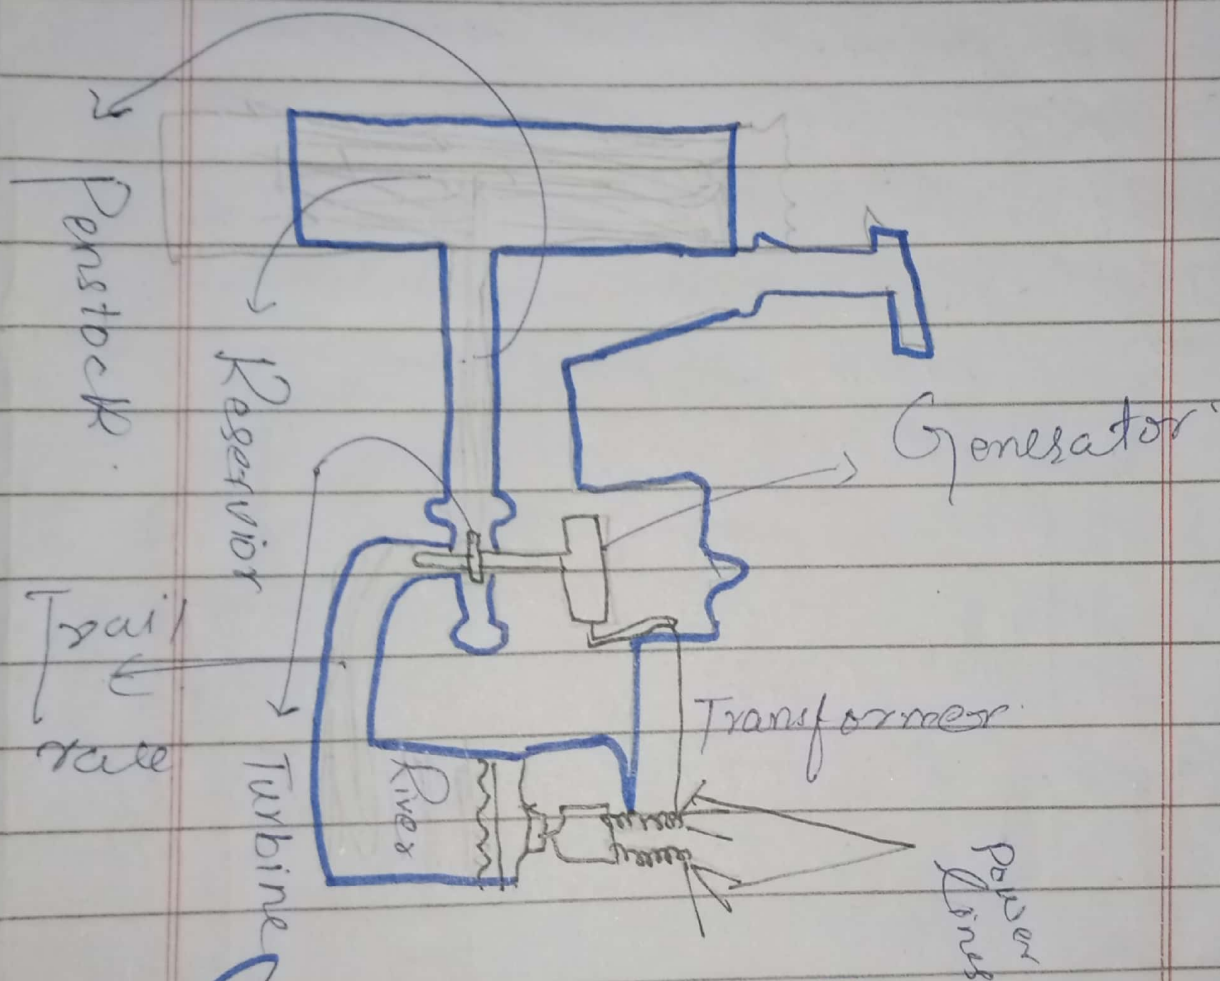 Penstock
Reservior
Generator
Trail
race
Turbine
River
Transformer
Power
lines